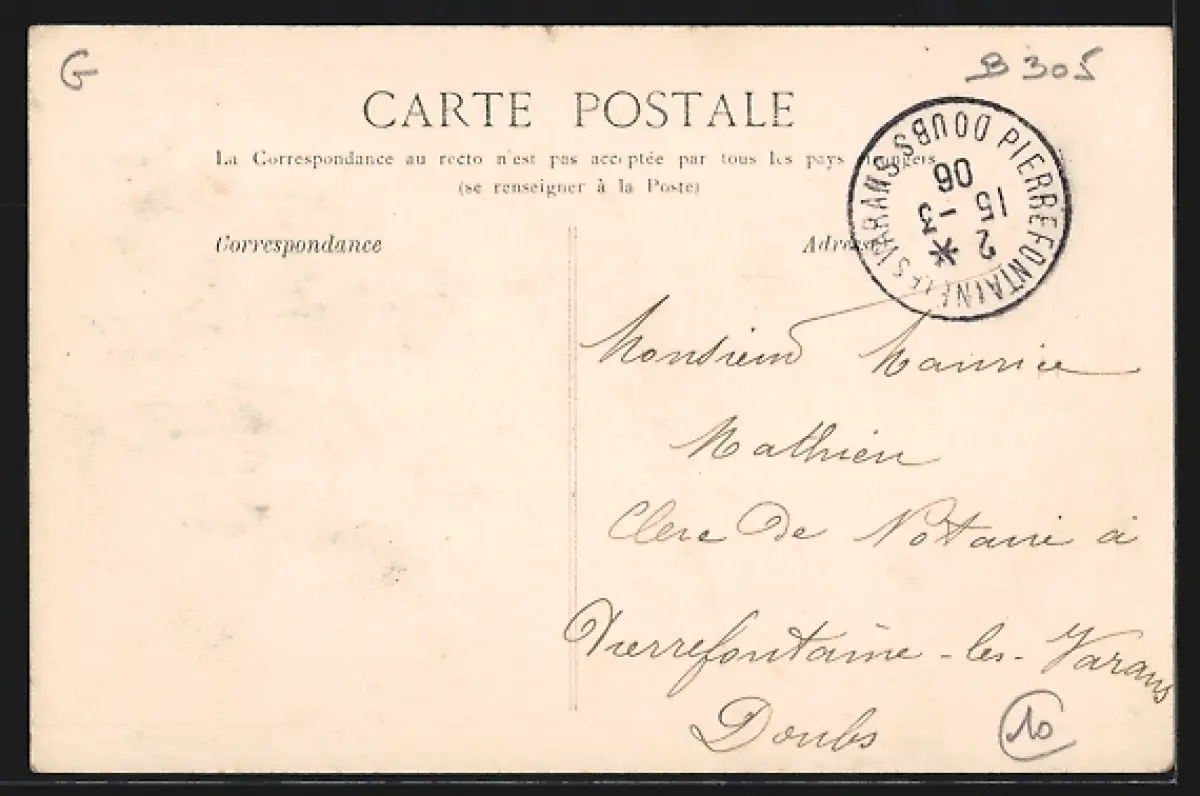 G
B 305
CARTE POSTALE
La Correspondance au recto n'est pas acceptée par tous les pays étrangers
(se renseigner à la Poste)
PIERREFONTAINE LES VARANS DOUBS
2
15 -3
06
Correspondance
Adresse
Monsieur Maurice
Mathieu
Clerc de Notaire à
Pierrefontaine-les-Varans
Doubs
10